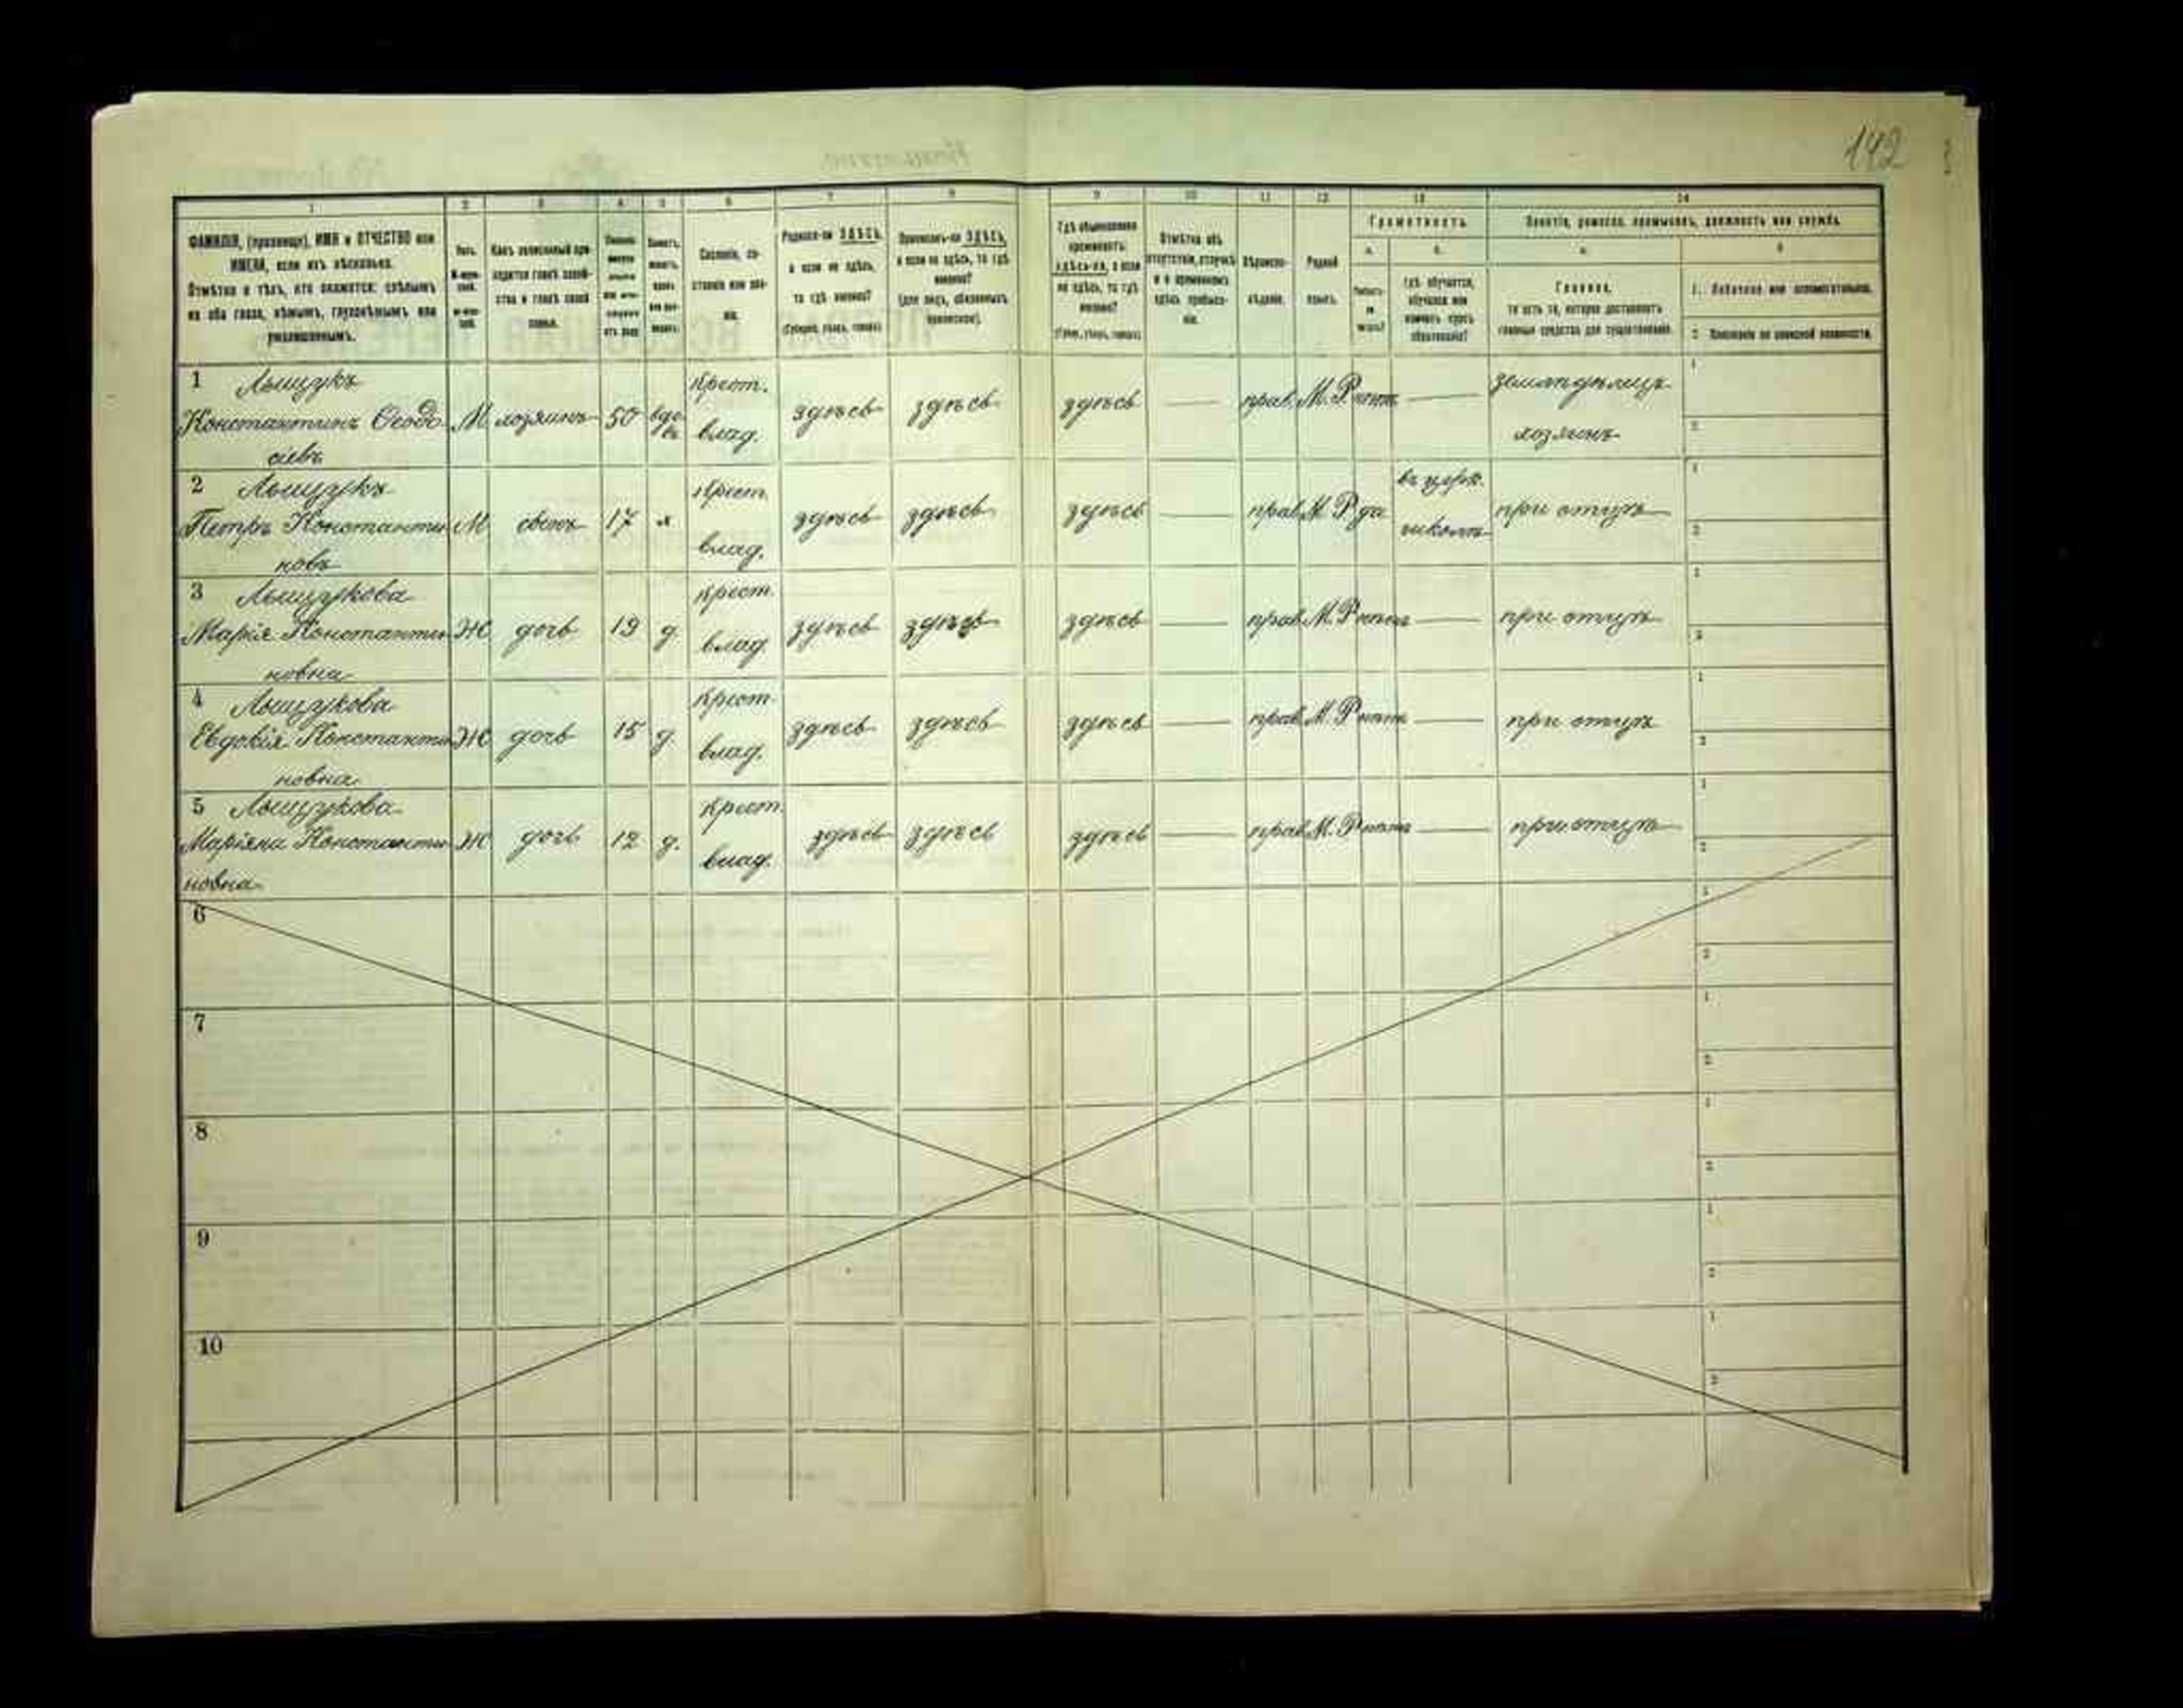 142
1 2 3 4 5 6 7 8 9 10 11 12 13 14
ФАМИЛІЯ, (прозвище), ИМЯ и ОТЧЕСТВО или
ИМЕНА, если ихъ нѣсколько.
Отмѣтка о тѣхъ, кто окажется: слѣпымъ
на оба глаза, нѣмымъ, глухонѣмымъ или
умалишеннымъ.
Полъ.
Какъ записанный при-
ходится главѣ хозяй-
ства и главѣ своей
семьи.
Сословіе, со-
стояніе или зва-
ніе.
Родился-ли ЗДѢСЬ,
а если не здѣсь,
то гдѣ именно?
(Губернія, уѣздъ, городъ)
Приписанъ-ли ЗДѢСЬ,
а если не здѣсь, то гдѣ
именно?
(для лицъ, обязанныхъ
припискою).
Гдѣ обыкновенно
проживаетъ:
здѣсь-ли, а если
не здѣсь, то гдѣ
именно?
(Губ., уѣздъ, городъ)
Отмѣтка объ
отсутствіи, отлучкѣ
и о временномъ
здѣсь пребыва-
ніи.
Вѣроиспо-
вѣданіе.
Родной
языкъ.
Грамотность.
а. б.
Умѣетъ-
ли
читать?
Гдѣ обучается,
обучался или
кончилъ курсъ
образованія?
Занятіе, ремесло, промыселъ, должность или служба.
а. б.
Главное,
то есть то, которое доставляетъ
главныя средства для существованія.
1. Побочное или вспомогательное.
2. Положеніе по воинской повинности.
1 Лыщукъ
Константинъ Ѳеодо
сіевъ
М хозяинъ 50 вдо
въ
крест.
влад.
здѣсь здѣсь здѣсь — прав. М.Р. нѣтъ — земледѣлецъ
хозяинъ
1
2
2 Лыщукъ
Петръ Константи
новъ
М сынъ 17 х
крест.
влад.
здѣсь здѣсь здѣсь — прав. М.Р. да
въ церк.
школѣ
при отцѣ
1
2
3 Лыщукова
Марія Константи
новна
Ж дочь 19 д.
крест.
влад.
здѣсь здѣсь здѣсь — прав. М.Р. нѣтъ — при отцѣ
1
2
4 Лыщукова
Евдокія Константи
новна
Ж дочь 15 д.
крест.
влад.
здѣсь здѣсь здѣсь — прав. М.Р. нѣтъ — при отцѣ
1
2
5 Лыщукова
Маріяна Константи
новна
Ж дочь 12 д.
крест.
влад.
здѣсь здѣсь здѣсь — прав. М.Р. нѣтъ — при отцѣ
1
2
6
1
2
7
1
2
8
1
2
9
1
2
10
1
2